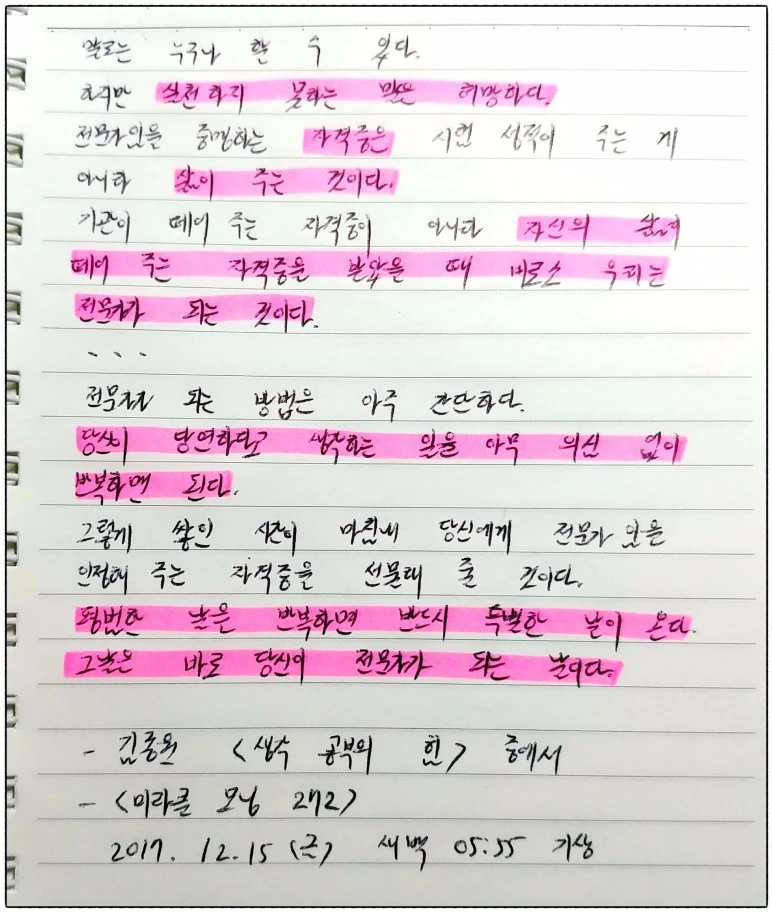 말로는 누구나 할 수 있다.
하지만 실천하지 못하는 말은 허망하다.
전문가임을 증명하는 자격증은 시험 성적이 주는 게
아니라 삶이 주는 것이다.
기관이 떼어 주는 자격증이 아니라 자신의 삶이
떼어 주는 자격증을 받았을 때 비로소 우리는
전문가가 되는 것이다.
...
전문가가 되는 방법은 아주 간단하다.
당신이 당연하다고 생각하는 일을 아무 의심 없이
반복하면 된다.
그렇게 쌓인 시간이 마침내 당신에게 전문가임을
인정해 주는 자격증을 선물해 줄 것이다.
평범한 날을 반복하면 반드시 특별한 날이 온다.
그날은 바로 당신이 전문가가 되는 날이다.
- 김종원 <생각 공부의 힘> 중에서
- <미라클 모닝 272>
2017. 12. 15 (금) 새벽 05:55 기상